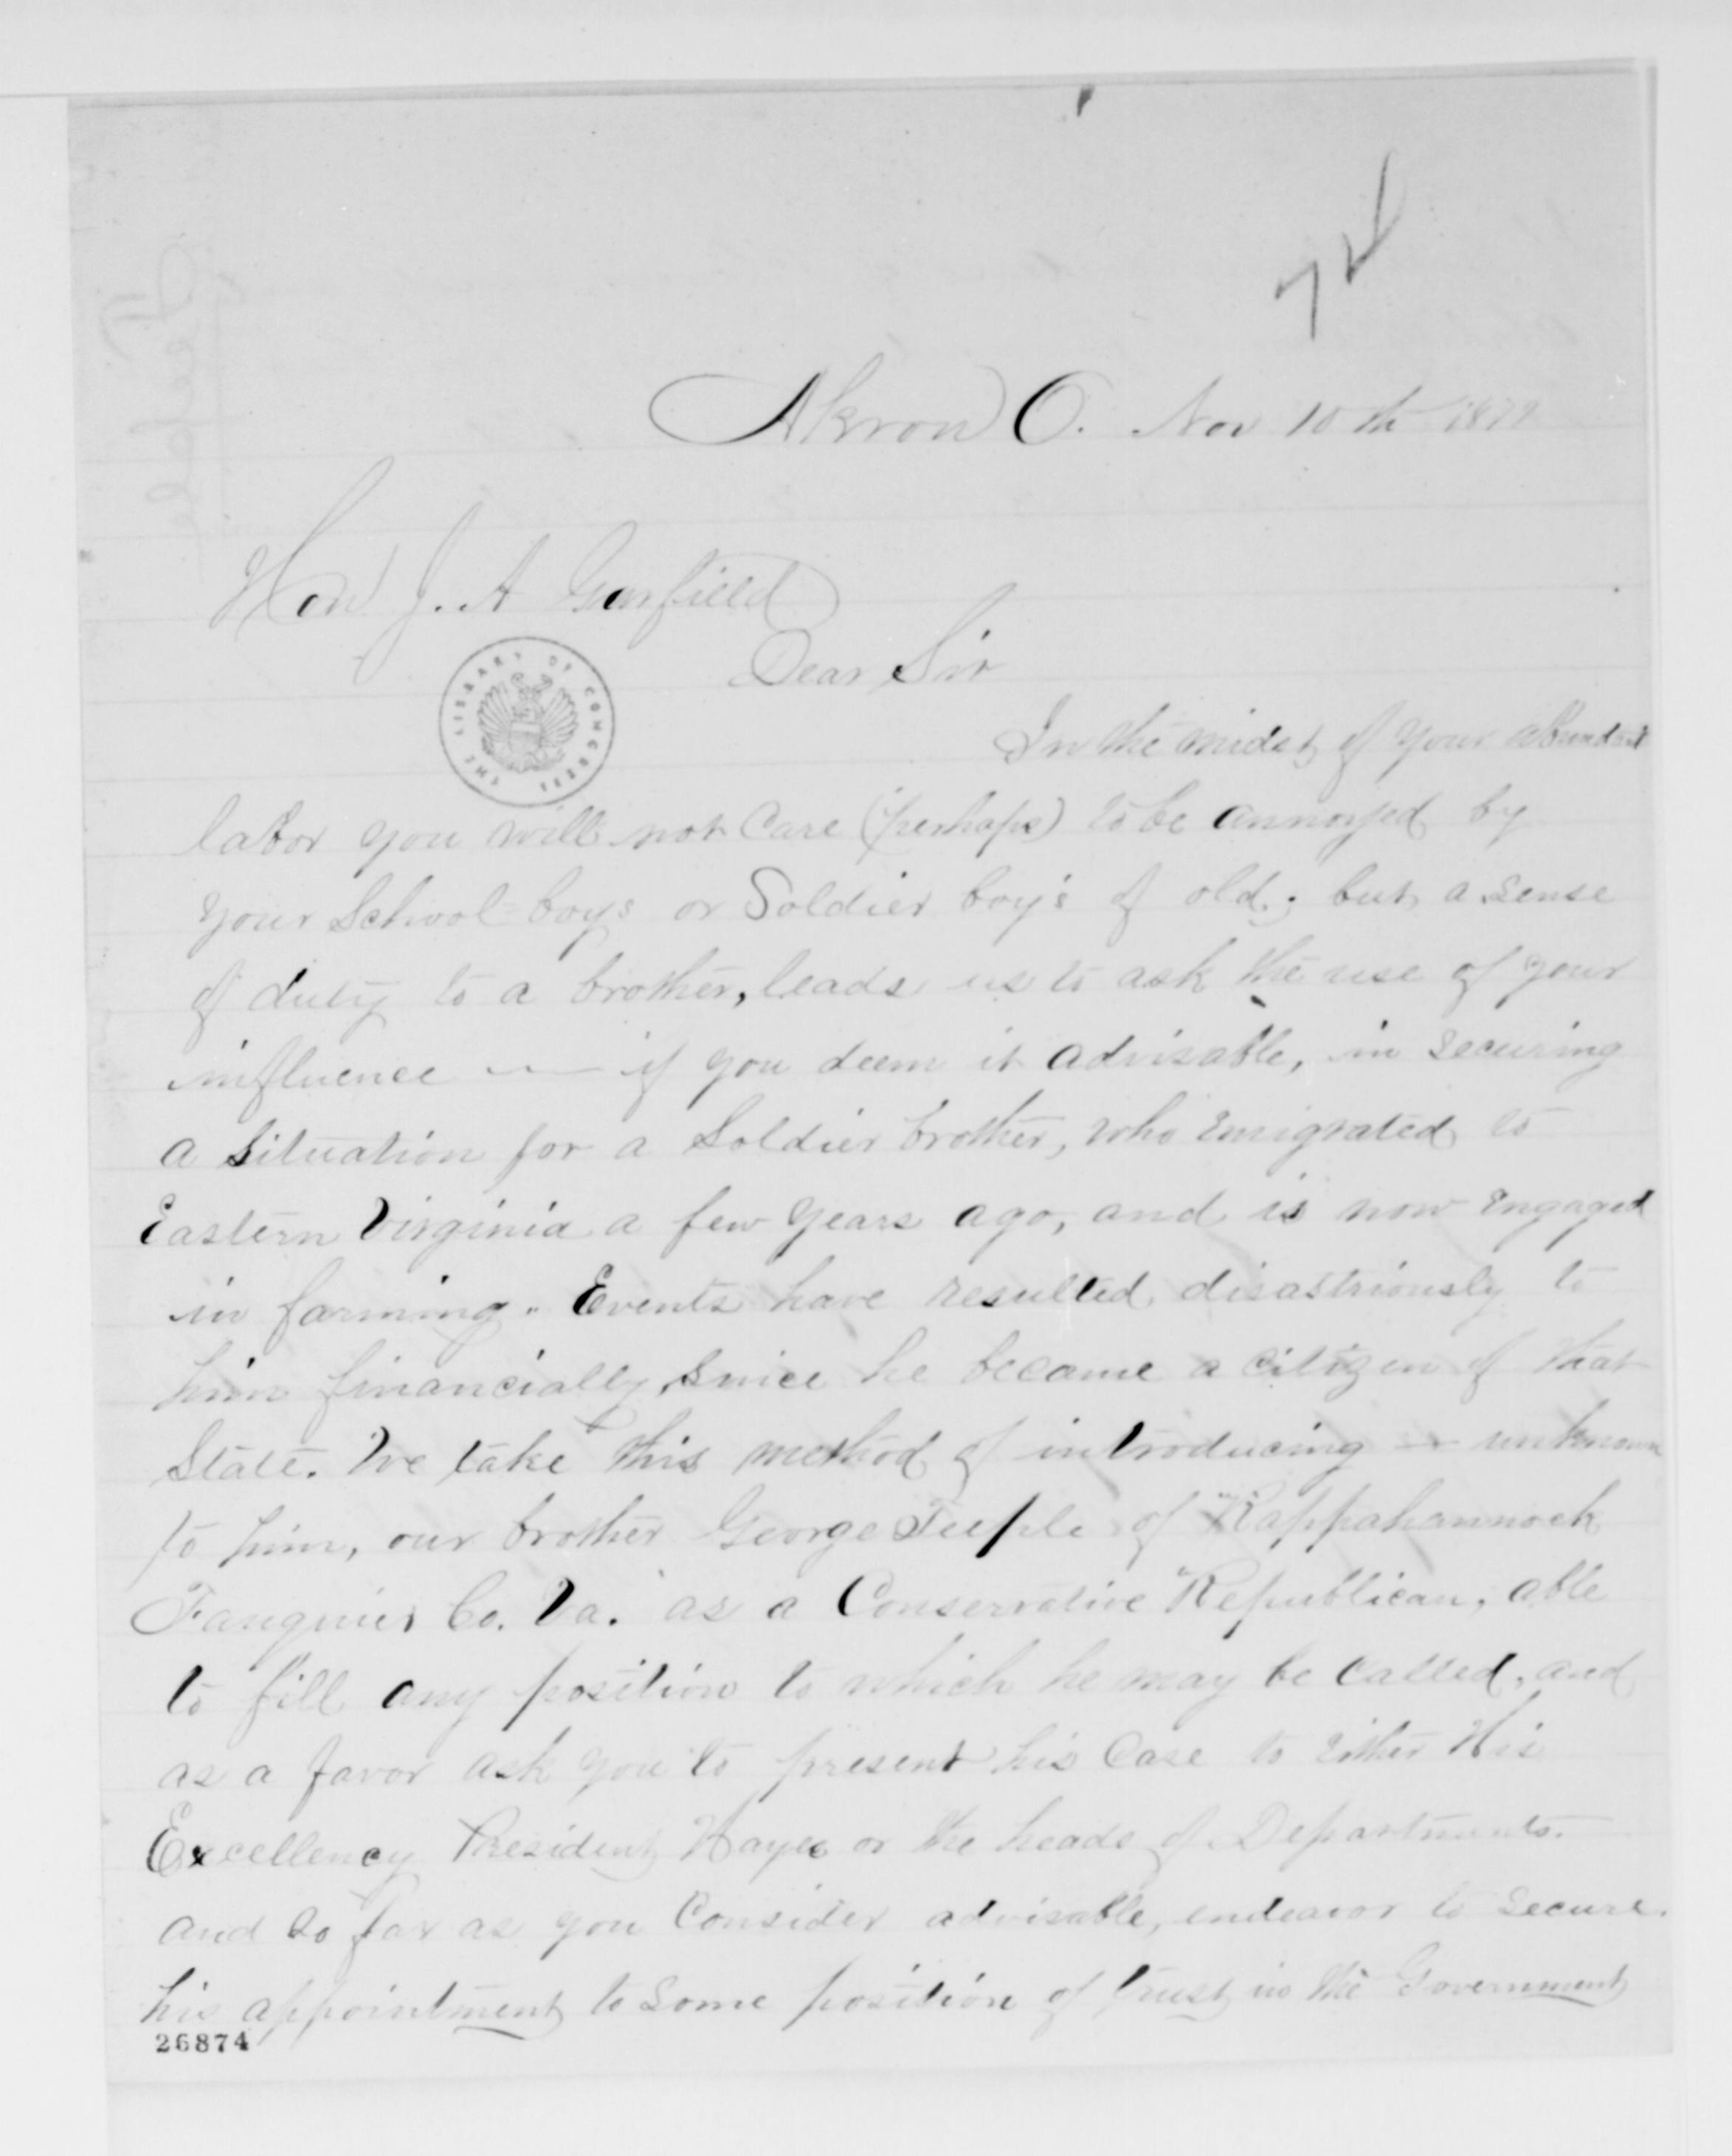 Akron O. Nov 10th 1877
Hon J. A Garfield
Dear Sir
THE LIBRARY OF CONGRESS
In the midst of your abundant
labor you will not care (perhaps) to be annoyed by
your School-boys or Soldier boy's of old; but a sense
of duty to a brother, leads us to ask the use of your
influence — if you deem it advisable, in securing
a situation for a Soldier brother, who emigrated to
Eastern Virginia a few years ago, and is now engaged
in farming. Events have resulted disastriously to
him financially, since he became a citizen of that
State. We take this method of introducing — unknown
to him, our brother George Teeple of "Rappahannock
Fauquier Co. Va." as a Conservative Republican, able
to fill any position to which he may be called, and
as a favor ask you to present his case to either His
Excellency President Hayes or the heads of Departments.
and so far as you consider advisable, endeavor to secure
his appointment to some position of trust in the Government
26874